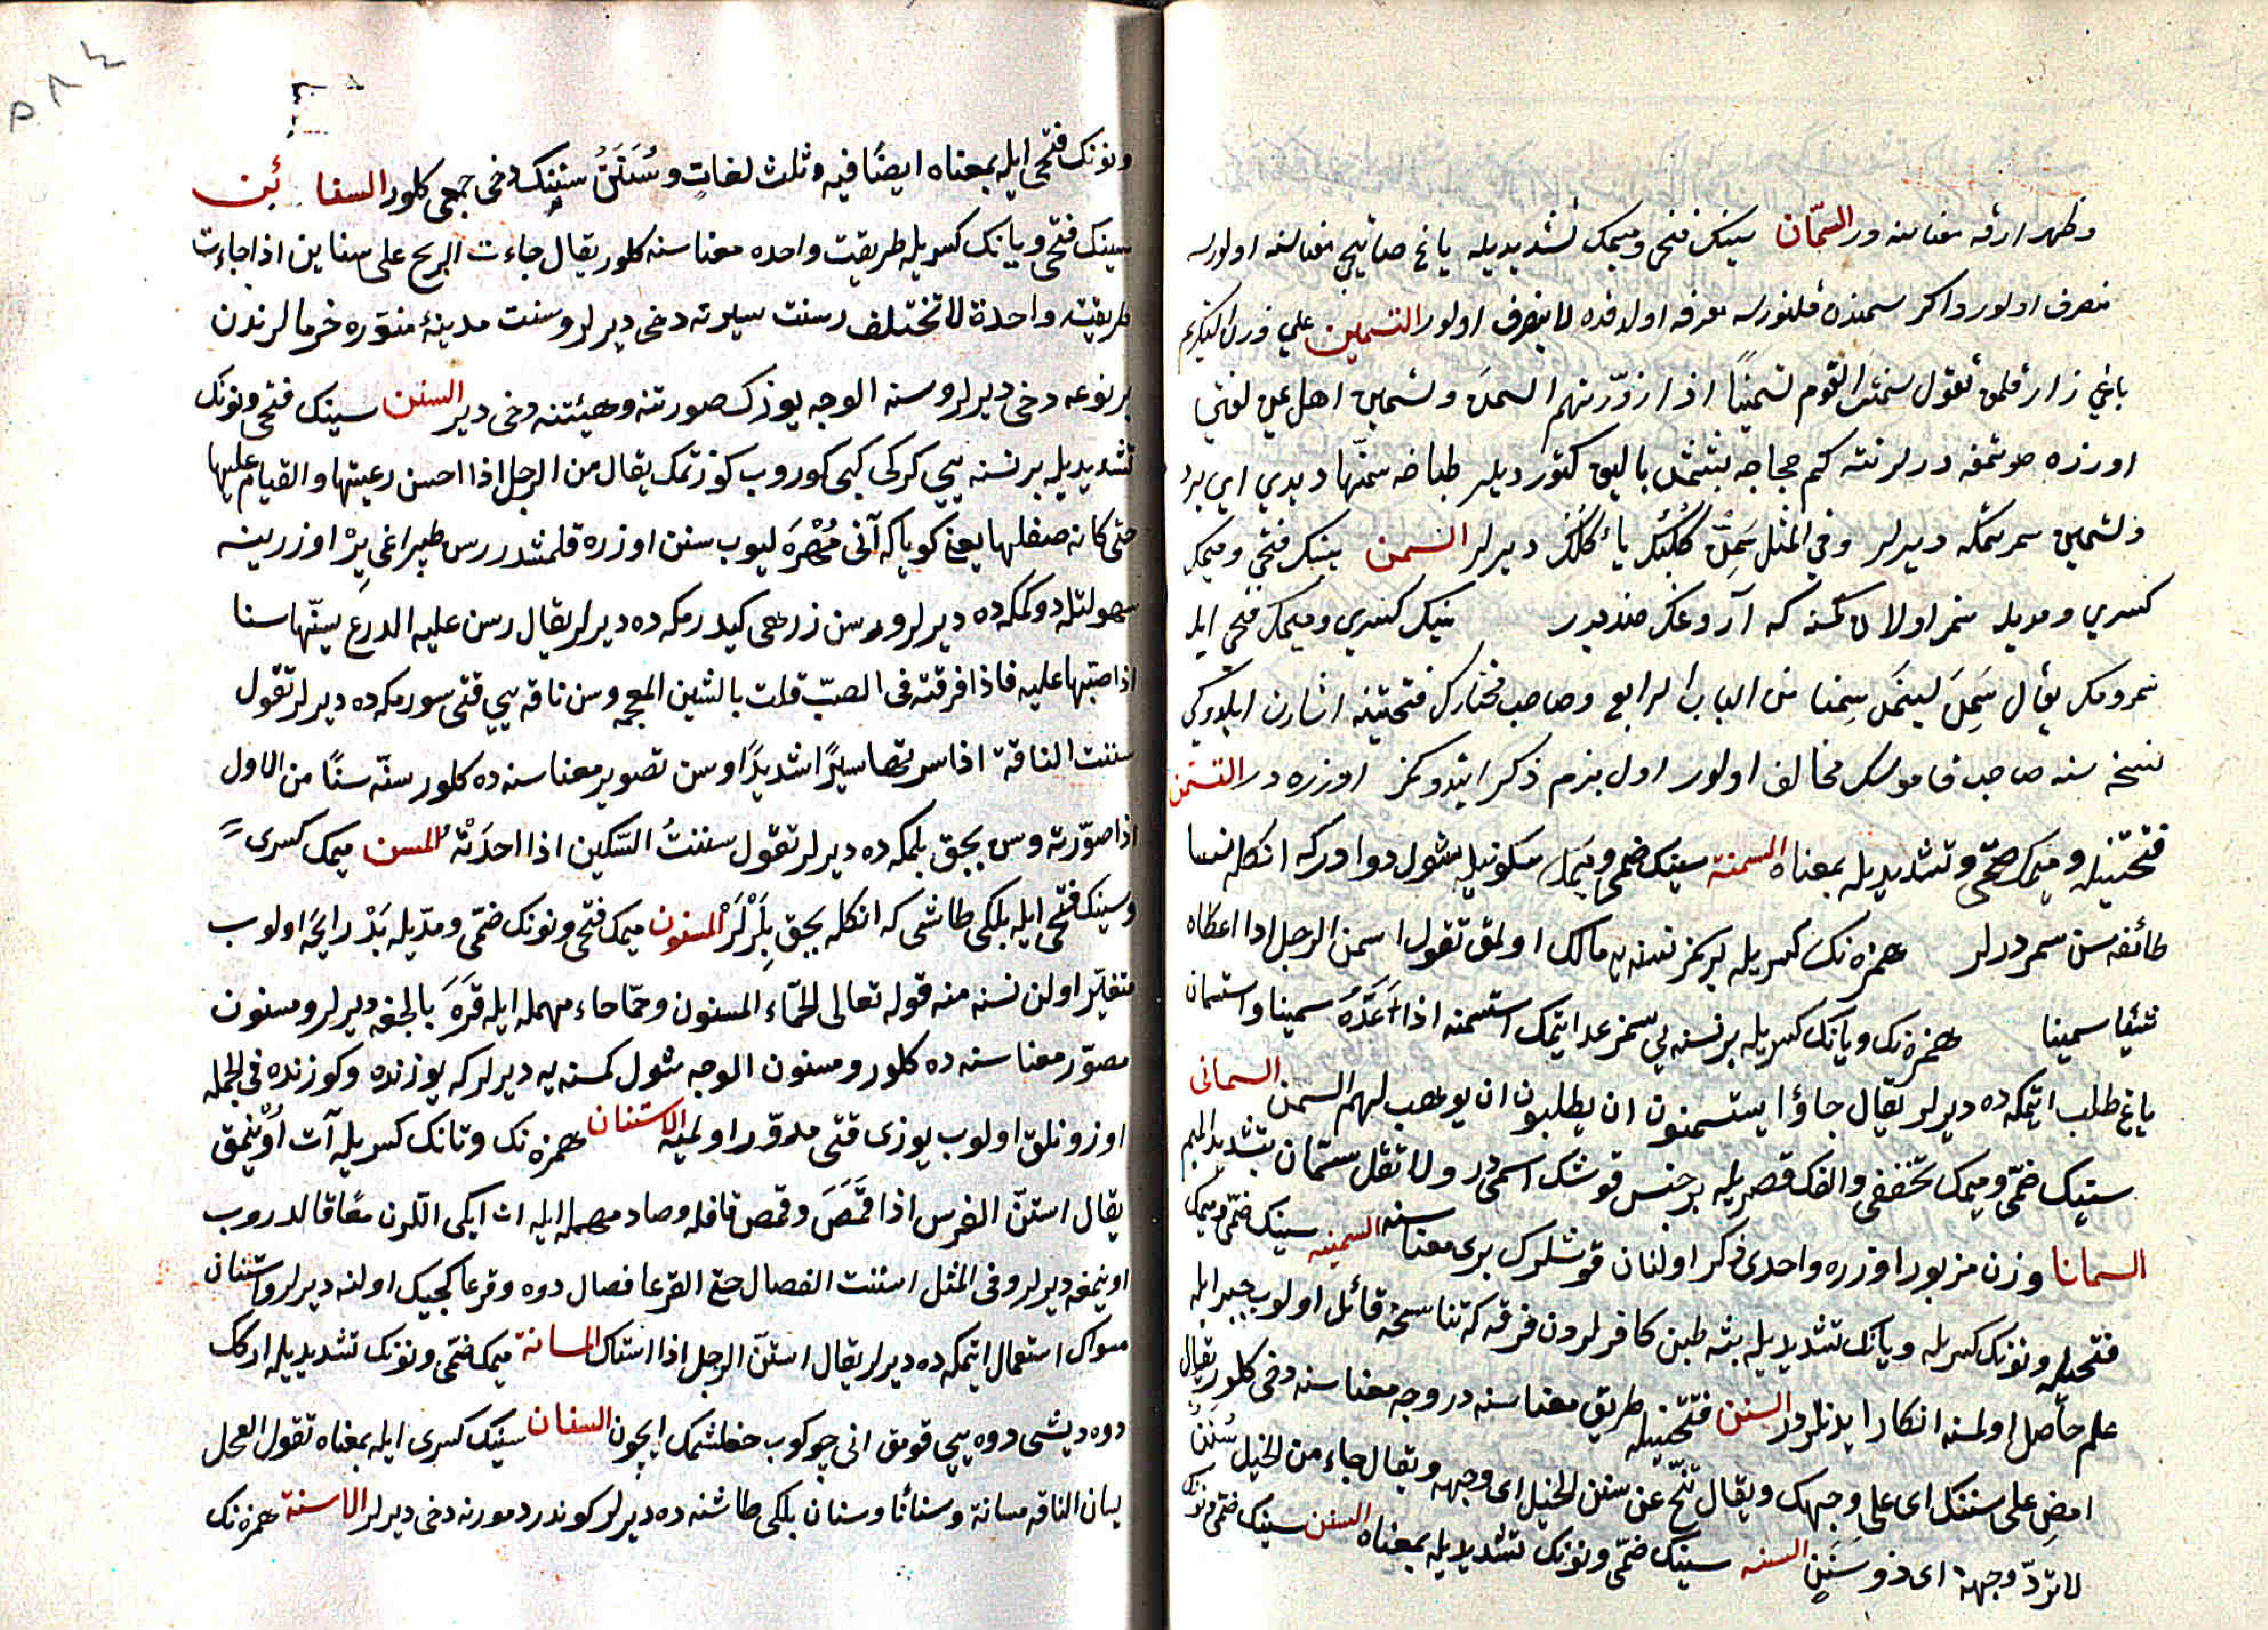 وظهر ارقه معناسنه در السمّان سينك فتحى وميمك تشديديله ياغ صاتيجى معناسنه اولورسه
منصرف اولور واكر سمندن قلنورسه معرفه اولدقده لا ينصرف اولور التسمين على وزن التكريم
ياغى زار قلمق تقول سمّنت القوم تسمينًا اذا زوّدتهم السمن وتسمين اهل يمن لغتى
اوزره صوتمغه ديرلر نته كم حجاجه بشمش بالق كتورديلر طباخه سمّنها ديدى اى برد
وتسمين سمرتمكه ديرلر وفى المثل سَمِّنْ كَلْبَكَ يأكُلْكَ ديرلر السمن سينك فتحى وميمك
كسرى ومديله سمز اولان كمسنه كه آروغك ضديدر سينك كسرى وميمك فتحى ايله
سمرومك يقال سَمِنَ يسمَن سِمنا من الباب الرابع وصاحب مختارك فتحتينه اشارت ايلدوكى
نسخه سنه صاحب قاموسك مخالف اولور اول بزم ذكر ايتدوكمز اوزره در التسمن
فتحتينله وميمك ضمّى وتشديديله بمعناه السمنة سينك ضمى وميمك سكونيله شول دوادركه انكله نسا
طائفه سن سمردرلر همزه نك كسريله بر سمز نسنه يه مالك اولمق تقول اسمن الرجل اذا اعطاه
شيئا سمينا همزه نك ويانك كسريله بر نسنه يى سمز عد ايتمك استسمنه اذا اَعَدَّهُ سمينا واستسمان
ياغ طلب ايتمكه ده ديرلر يقال جاؤا يستسمنون ان يطلبون ان يوهب لهم السمن السمانى
سينك ضمّى وميمك تخففى والفك قصريله بر جنس قوشك اسمى در ولا تقل سمّان بتشديد الميم
السمانا وزن مزبور اوزره واحدى ذكر اولنان قوشلرك برى معناسنه السمنيه سينك ضمّى وميمك
فتحيله ونونك كسريله ويانك تشديديله بته طبن كافرلردن فرقه كه تناسخه قائل اولوب خبر ايله
علم حاصل اولمسنه انكار ايدنلردر السنن فتحتينله طريق معناسنه در وجه معناسنه دخى كلور يقال
امضِ على سننك اى على وجهك ويقال تنّح عن سنن الخيل اى وجهه ويقال جاء من الخيل سُنَنٌ
لا تردّ وجهة اى ذو سَنَنٍ السنه سينك ضمّى ونونك تشديديله بمعناه السنن سينك ضمّى ونونك
ونونك فتحى ايله بمعناه ايضًا فيه وثلث لغاتٍ وسُنَنٌ سننِك دخى جمعى كلور السنائن
سينك فتحى ويانك كسريله طريقت واحده معناسنه كلور يقال جاءت الريح على سناين اذا جاءت
طريقت واحدة لا تختلف رسنت سيرته دخى ديرلر وسنت مدينۀ منوّره خرمالرندن
بر نوعه دخى ديرلر وسنه الوجه يوزك صورتنه وهيئتنه دخى دير السنن سينك فتحى ونونك
تشديديله بر نسنه يى كركى كبى كوروب كوزتمك يقال من الرجل اذا احسن رعيتها والقيام عليها
حتى كانه صقلها يعنى كوياكه آنى مُحْرَه ليوب سنن اوزره قلمشدر رس طپراغى يِرْ اوزرينه
سهولتله دوكمكه ده ديرلر ورسن زرهى كيدرمكه ده ديرلر يقال رسن عليه الدرع سنّها سنا
اذا صبّها عليه فاذا فرقته فى الصبّ قلت بالشين المعجمه وسن ناقه يى قتى سورمكه ده ديرلر تقول
سننت الناقة اذا سرتها سيرًا شديدًا وسن تصوير معناسنه ده كلور سنّه سنًا من الاول
اذا صوّرته وس بچق بلمكه ده ديرلر تقول سننتُ السّكين اذا احدَتْهُ المسن ميمك كسرى
وسينك فتحى ايله بلكى طاشى كه انكله بچق بِلَرْلَرْ المسنون ميمك فتحى ونونك ضمّى ومدّيله بَدْ رايحَه اولوب
متغيّر اولن نسنه منه قوله تعالى الحماء المسنون وحمّا حاء مهمله ايله قرَه بالچغه ديرلر ومسنون
مصوّر معناسنه ده كلور ومسنون الوجه شول كمسنه يه ديرلر كه يوزنده وكوزنده فى الجمله
اوزونلق اولوب يوزى قتى مدوّر اولميه الاستنان همزه نك وتانك كسريله آت اوْينمق
يقال استنّ الفرس اذا قَمَصَ وقمص قافله وصاد مهمله ايله ات ايكى اللرن معًا قالدروب
اوينمغه ديرلر وفى المثل استنت الفصال حتى القرعا فصال دوه وقرعا كچيك اولنه ديرلر واستنان
مسواك استعمال ايتمكه ده ديرلر يقال استنّ الرجل اذا استاك المسانة ميمك ضمّى ونونك تشديديله اركك
دوه ديشى دوه يى قومق انى چوكوب خفلشمك ايچون السنان سينك كسرى ايله بمعناه تقول الفحل
يسان الناقه مسانة وسنانًا وسنان بلكى طاشنه ده ديرلر كوندر دمورنه دخى ديرلر الاسنة همزه نك